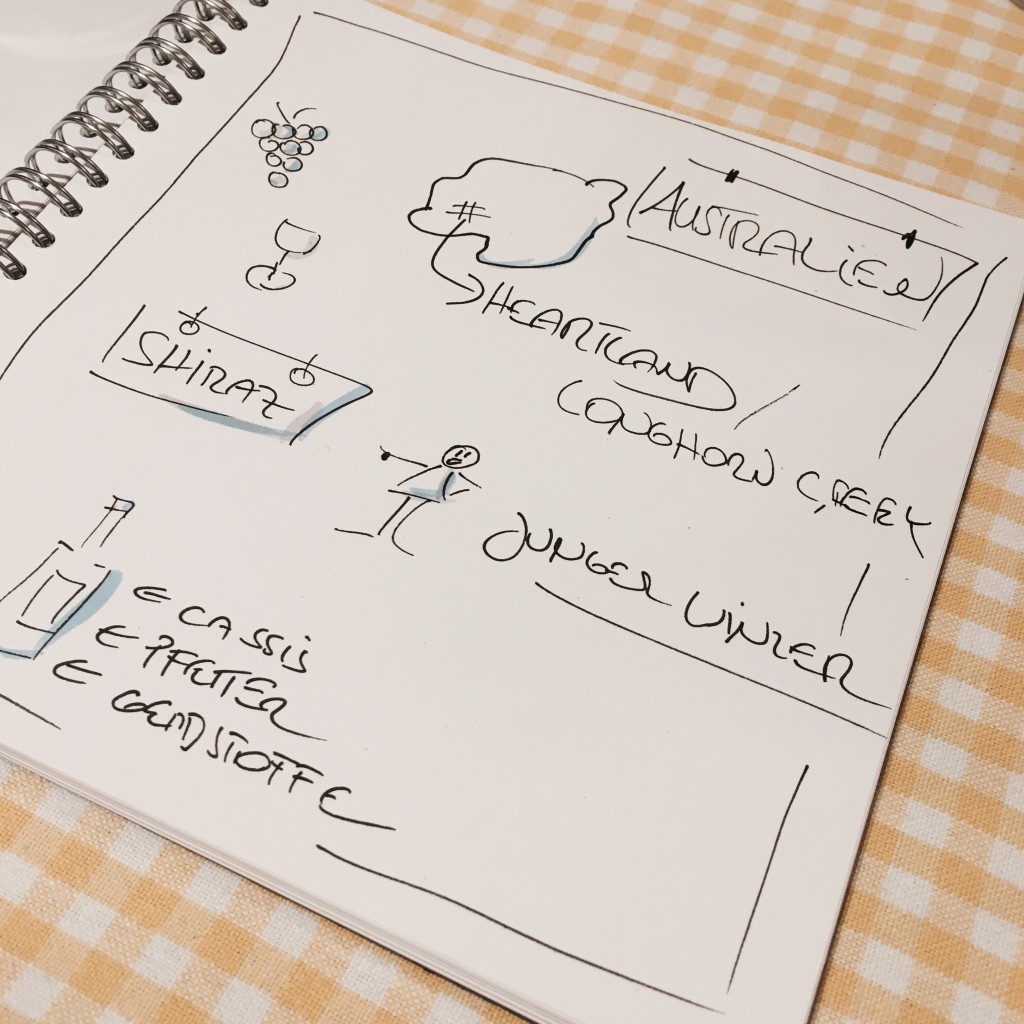 AUSTRALiEN
#
HEARTLAND /
LONGHORN CREEK
SHiRAZ
JUNGER WiNZER
CASSiS
PFEFFER
GERBSTOFFE